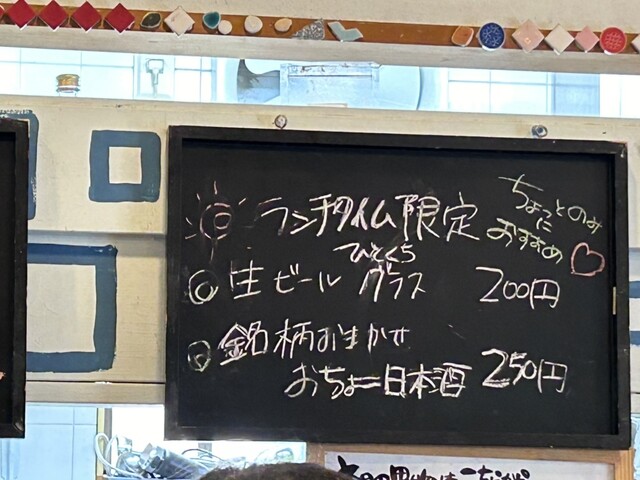 ランチタイム限定
ちょっとのみ
に
おすすめ
ひとくち
生ビール グラス 200円
銘柄おまかせ
おちょこ日本酒 250円